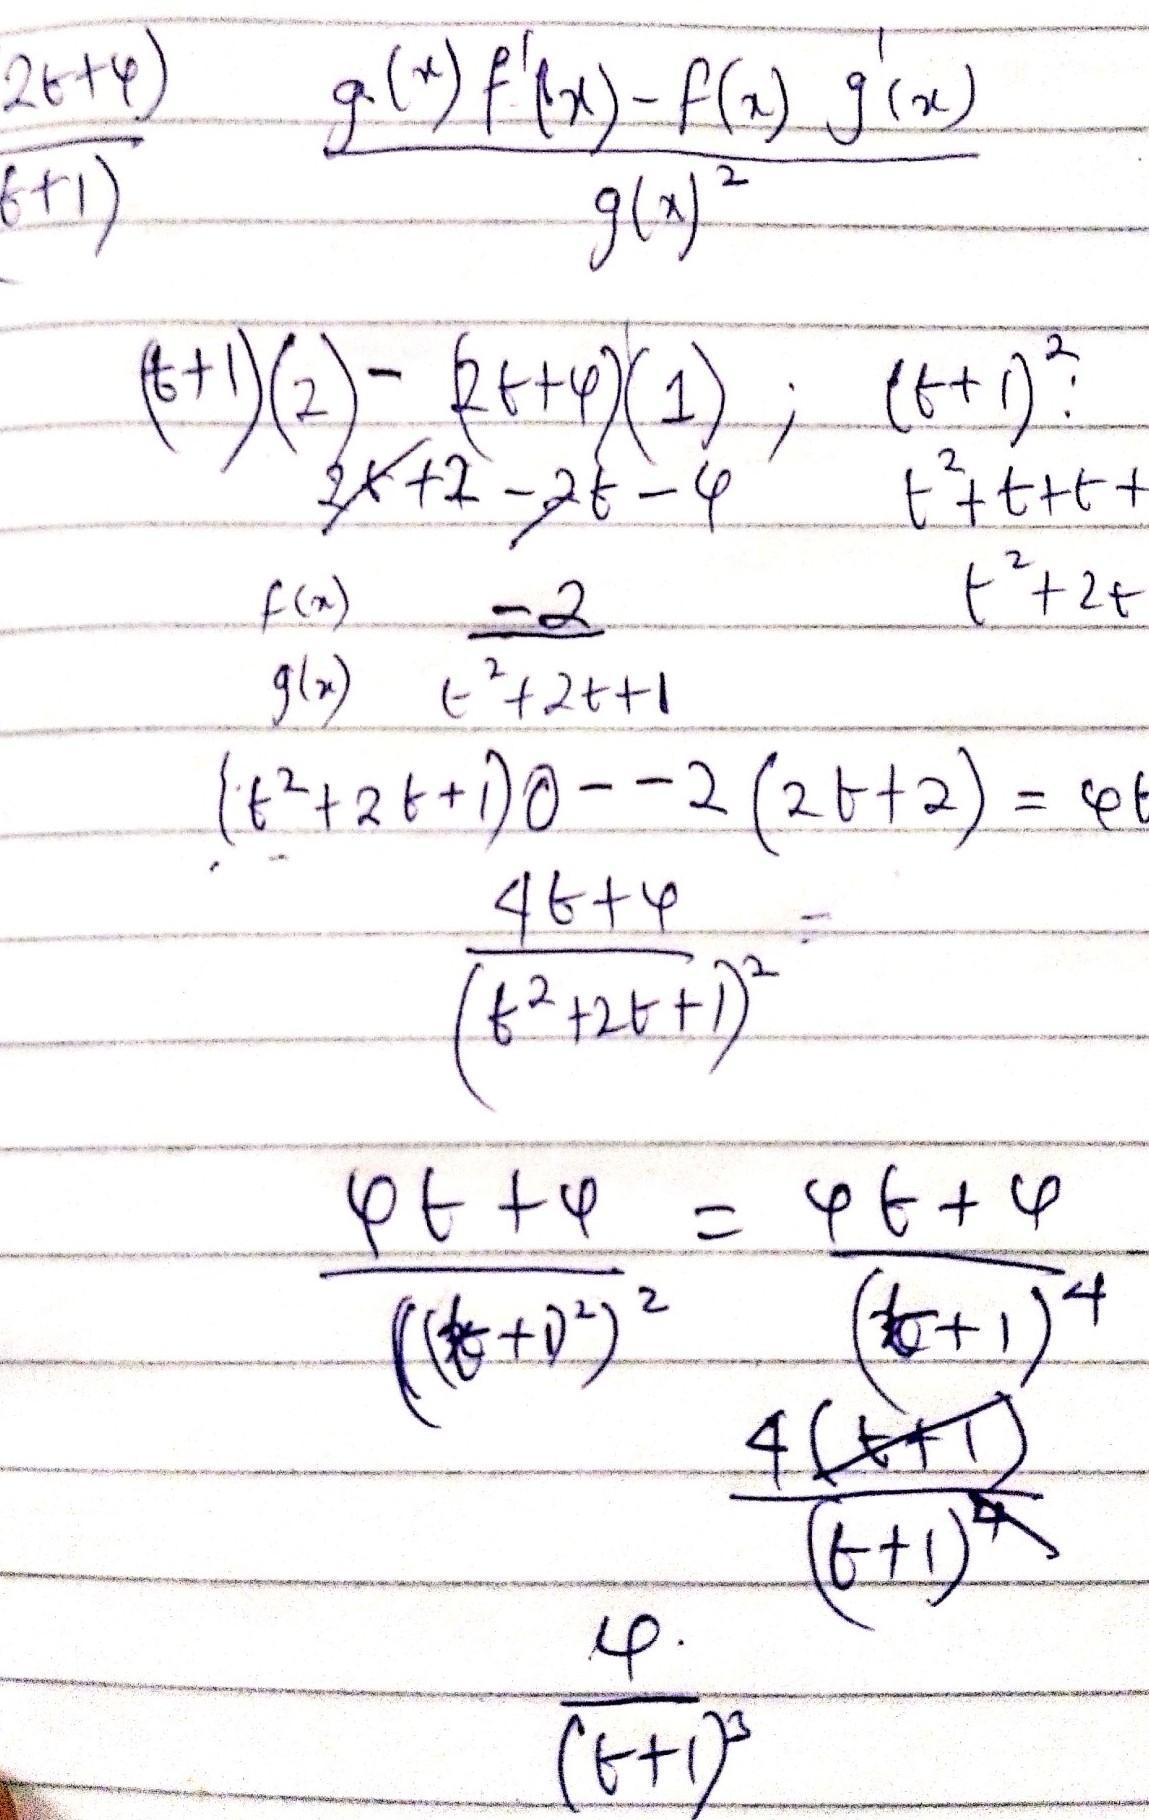 2t+4) g(x) f'(x) - f(x) g'(x)
t+1) g(x)²
(t+1)(2) - (2t+4)(1) ; (t+1)²:
2t+2 - 2t - 4 t²+t+t+
f(x) -2 t²+2t
g(x) t²+2t+1
(t²+2t+1)0 - -2(2t+2) = 4t
4t+4 =
(t²+2t+1)²
4t+4 = 4t+4
((t+1)²)² (t+1)⁴
4(t+1)
(t+1)⁴
4.
(t+1)³